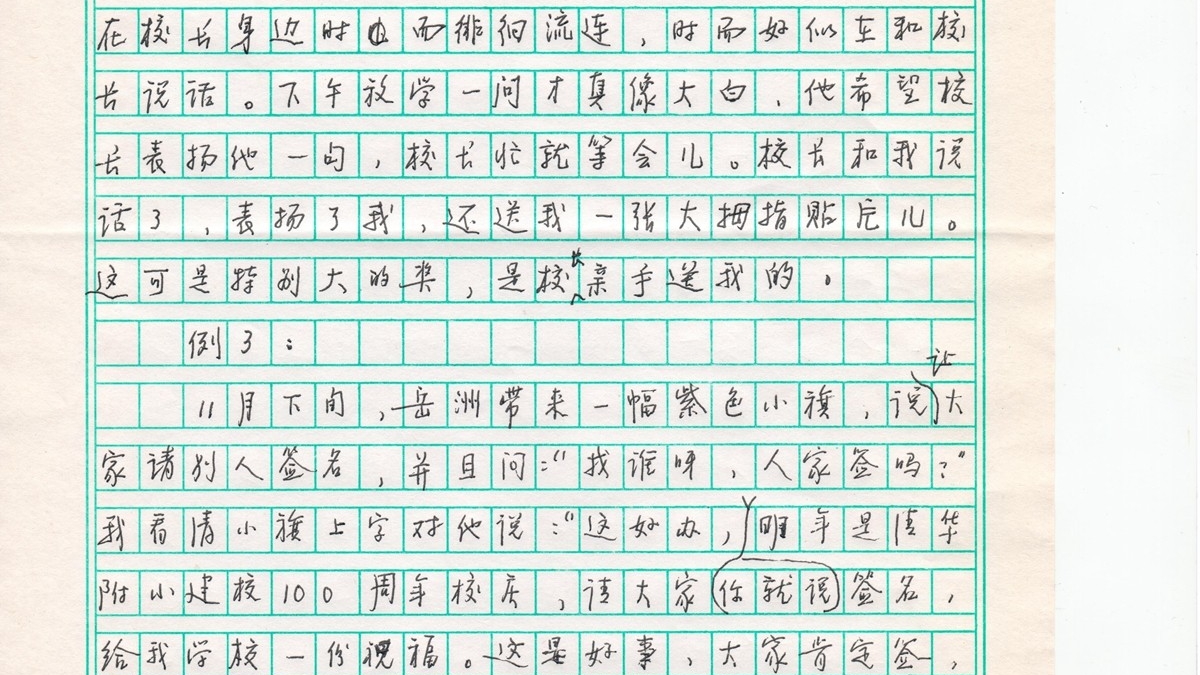 在校长身边时而徘徊流连，时而好似在和校
长说话。下午放学一问才真像大白，他希望校
长表扬他一句，校长忙就等会儿。校长和我说
话了，表扬了我，还送我一张大拇指贴片儿。
这可是特别大的奖，是校长亲手送我的。
例3：
11月下旬，岳洲带来一幅紫色小旗，说让大
家请别人签名，并且问：“找谁呀，人家签吗？”
我看清小旗上字对他说：“这好办，明年是清华
附小建校100周年校庆，请大家你就说签名，
给我学校一份祝福。这是好事，大家肯定签，